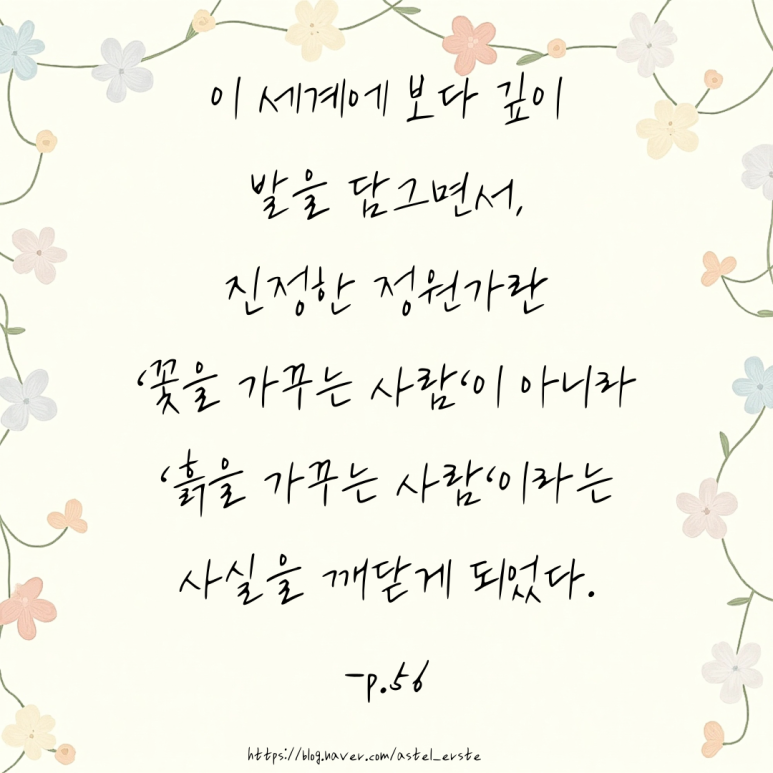 이 세계에 보다 깊이
발을 담그면서,
진정한 정원가란
‘꽃을 가꾸는 사람‘이 아니라
‘흙을 가꾸는 사람‘이라는
사실을 깨닫게 되었다.
-p.56
https://blog.naver.com/astel_erste